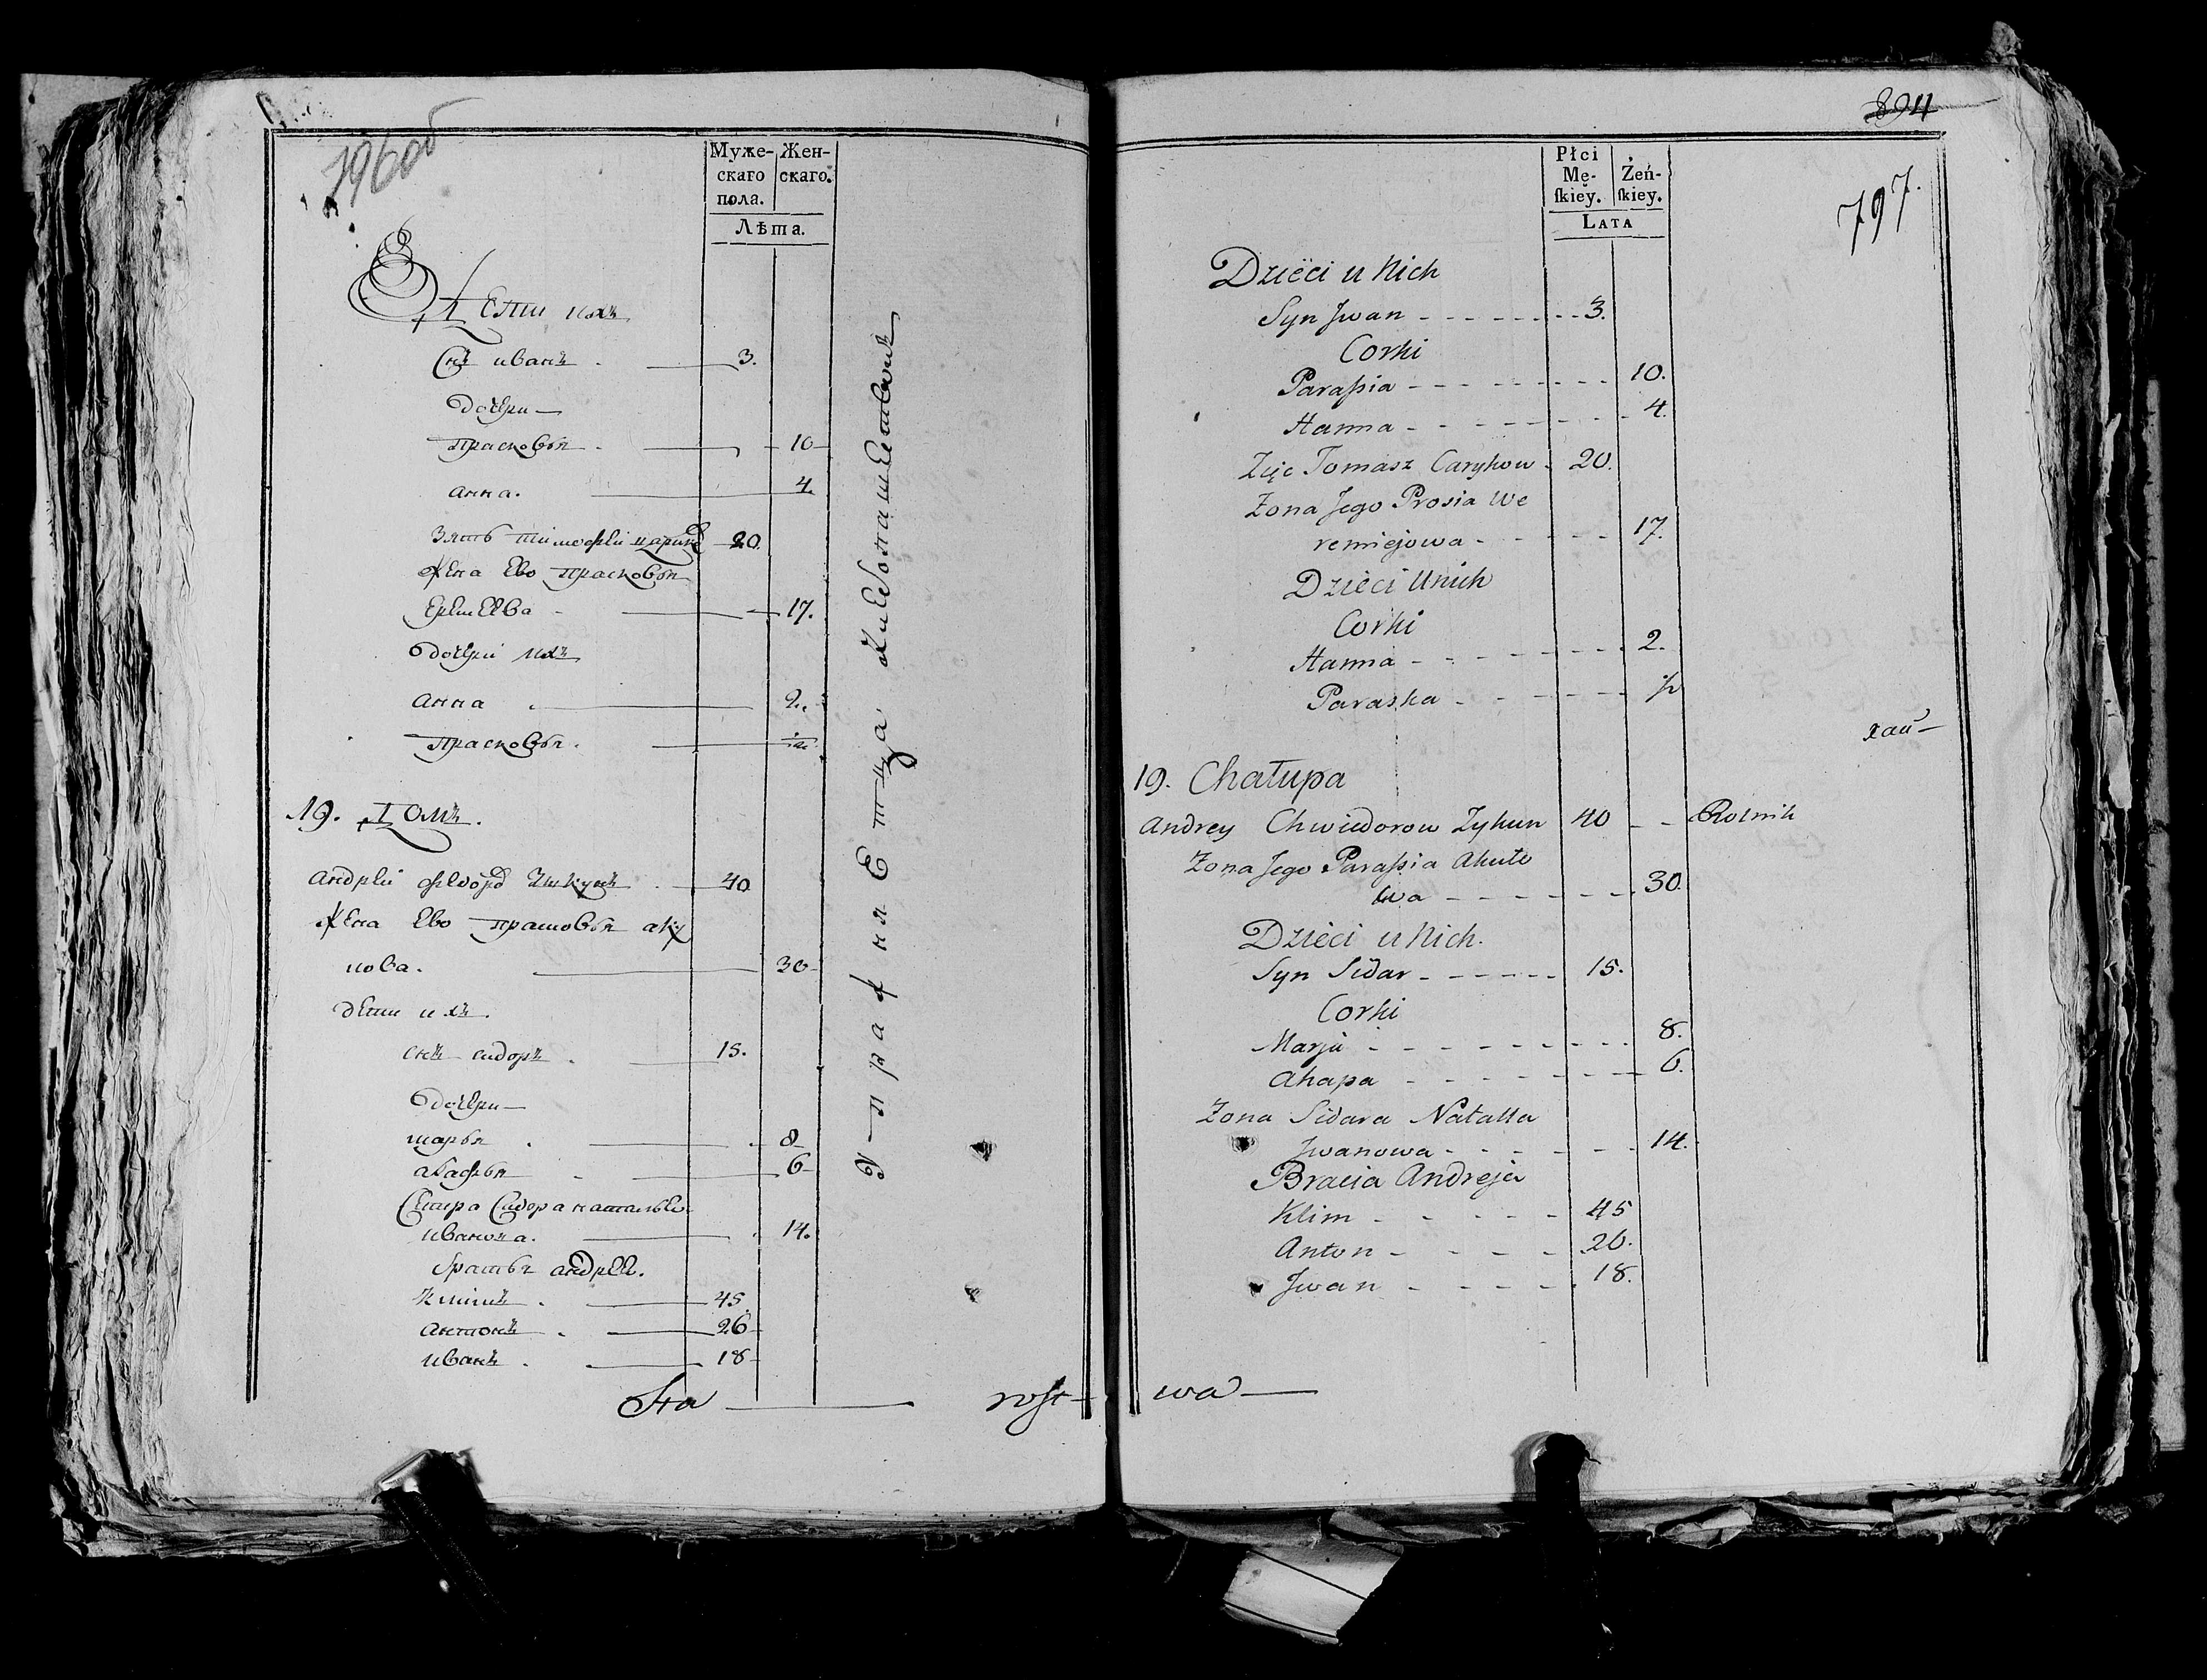 796об
Муже-
скаго
пола.
Жен-
скаго.
Лѣта.
Дети ихъ
Снъ иванъ 3.
дочери
прасковья 10
анна. 4.
Зять тимофеи 20.
жена ево прасковья
еремеева 17.
дочери ихъ
анна 2.
прасковья. ½
19. Домъ.
андреи федоро 40
жена ево прасковья аку
лова. 30
дети ихъ.
снъ сидоръ 15.
дочери
марья 8
агафья 6
Сидора наталья
иванова. 14.
братья андрея.
климъ 45.
антонъ 26
иванъ 18
Sta
rost
894
797.
Płci
Mę-
skiey.
Żeń-
skiey.
LATA
Dzieci u Nich
Syn Jwan 3.
Corki
Paraſsia 10.
Hanna 4.
Zięc Tomasz Carykow 20.
Zona Jego Prosia We
remiejowa 17.
Dzieci Unich
Corki
Hanna 2.
Paraska ½
19. Chałupa
Andrey Chwiedorow Zykun 40 Rolnik
Zona Jego Paraſsia Akuło
wa 30.
Dzieci u Nich.
Syn Sidar 15.
Corki
Marja 8.
Ahapa 6.
Zona Sidara Natalla
Jwanowa 14.
Bracia Andreja
Klim 45
Anton 26.
Jwan 18.
wa